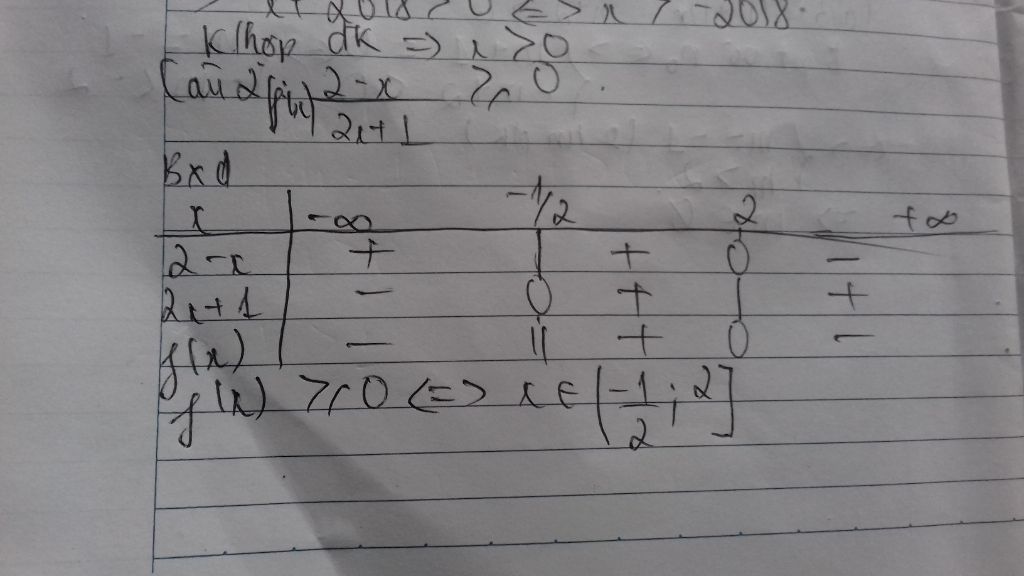 x + 2018 > 0 <=> x > -2018.
K/hợp đk => x > 0
Câu 2 f(x) 2-x / 2x+1 ⩾ 0.
Bxd
x | -∞ -1/2 2 +∞
2-x | + | + 0 -
2x+1 | - 0 + | +
f(x) | - || + 0 -
f(x) ⩾ 0 <=> x ∈ (-1/2 ; 2]